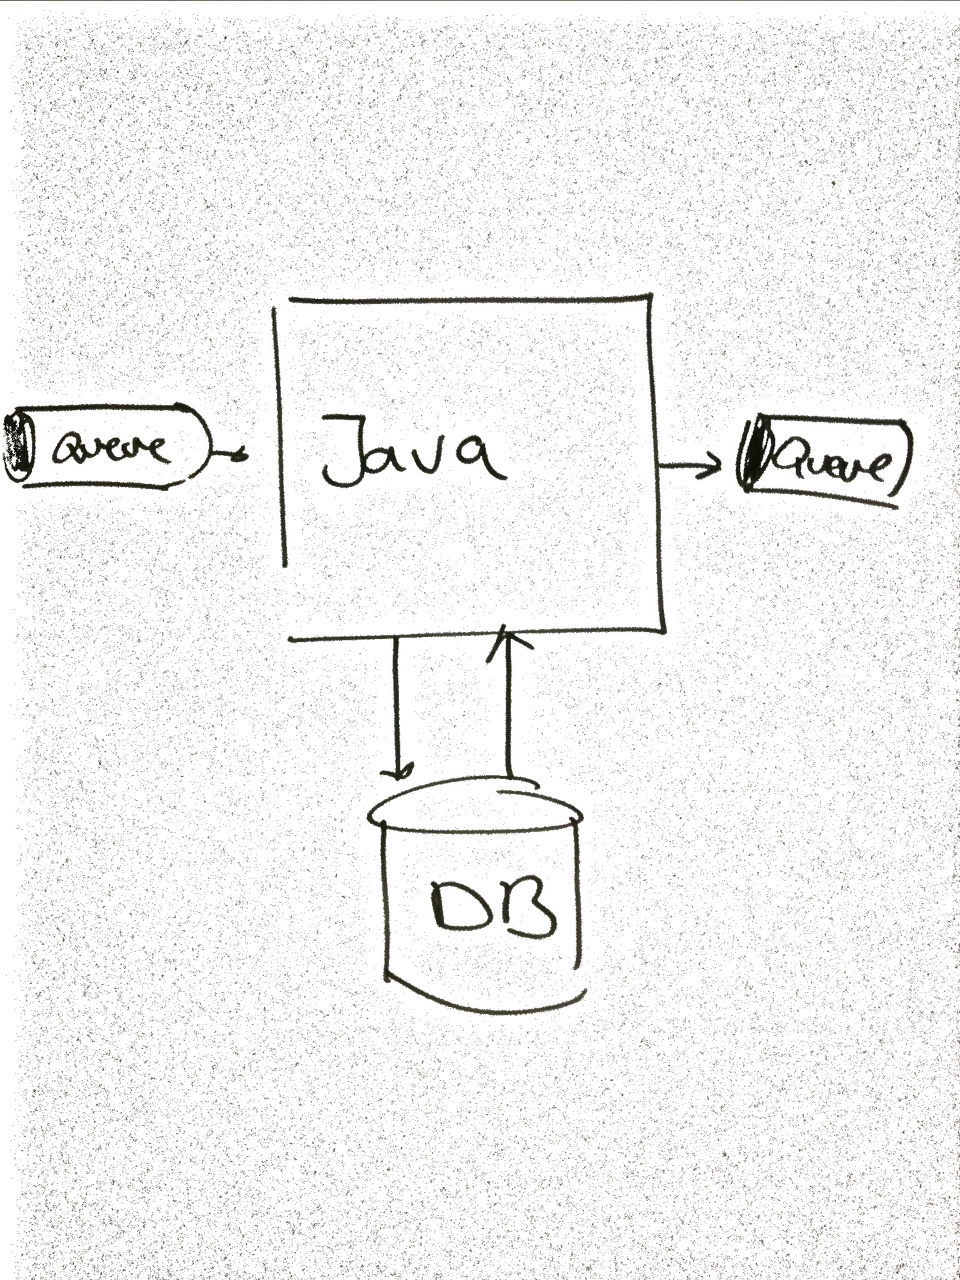 Queue
Java
Queue
DB